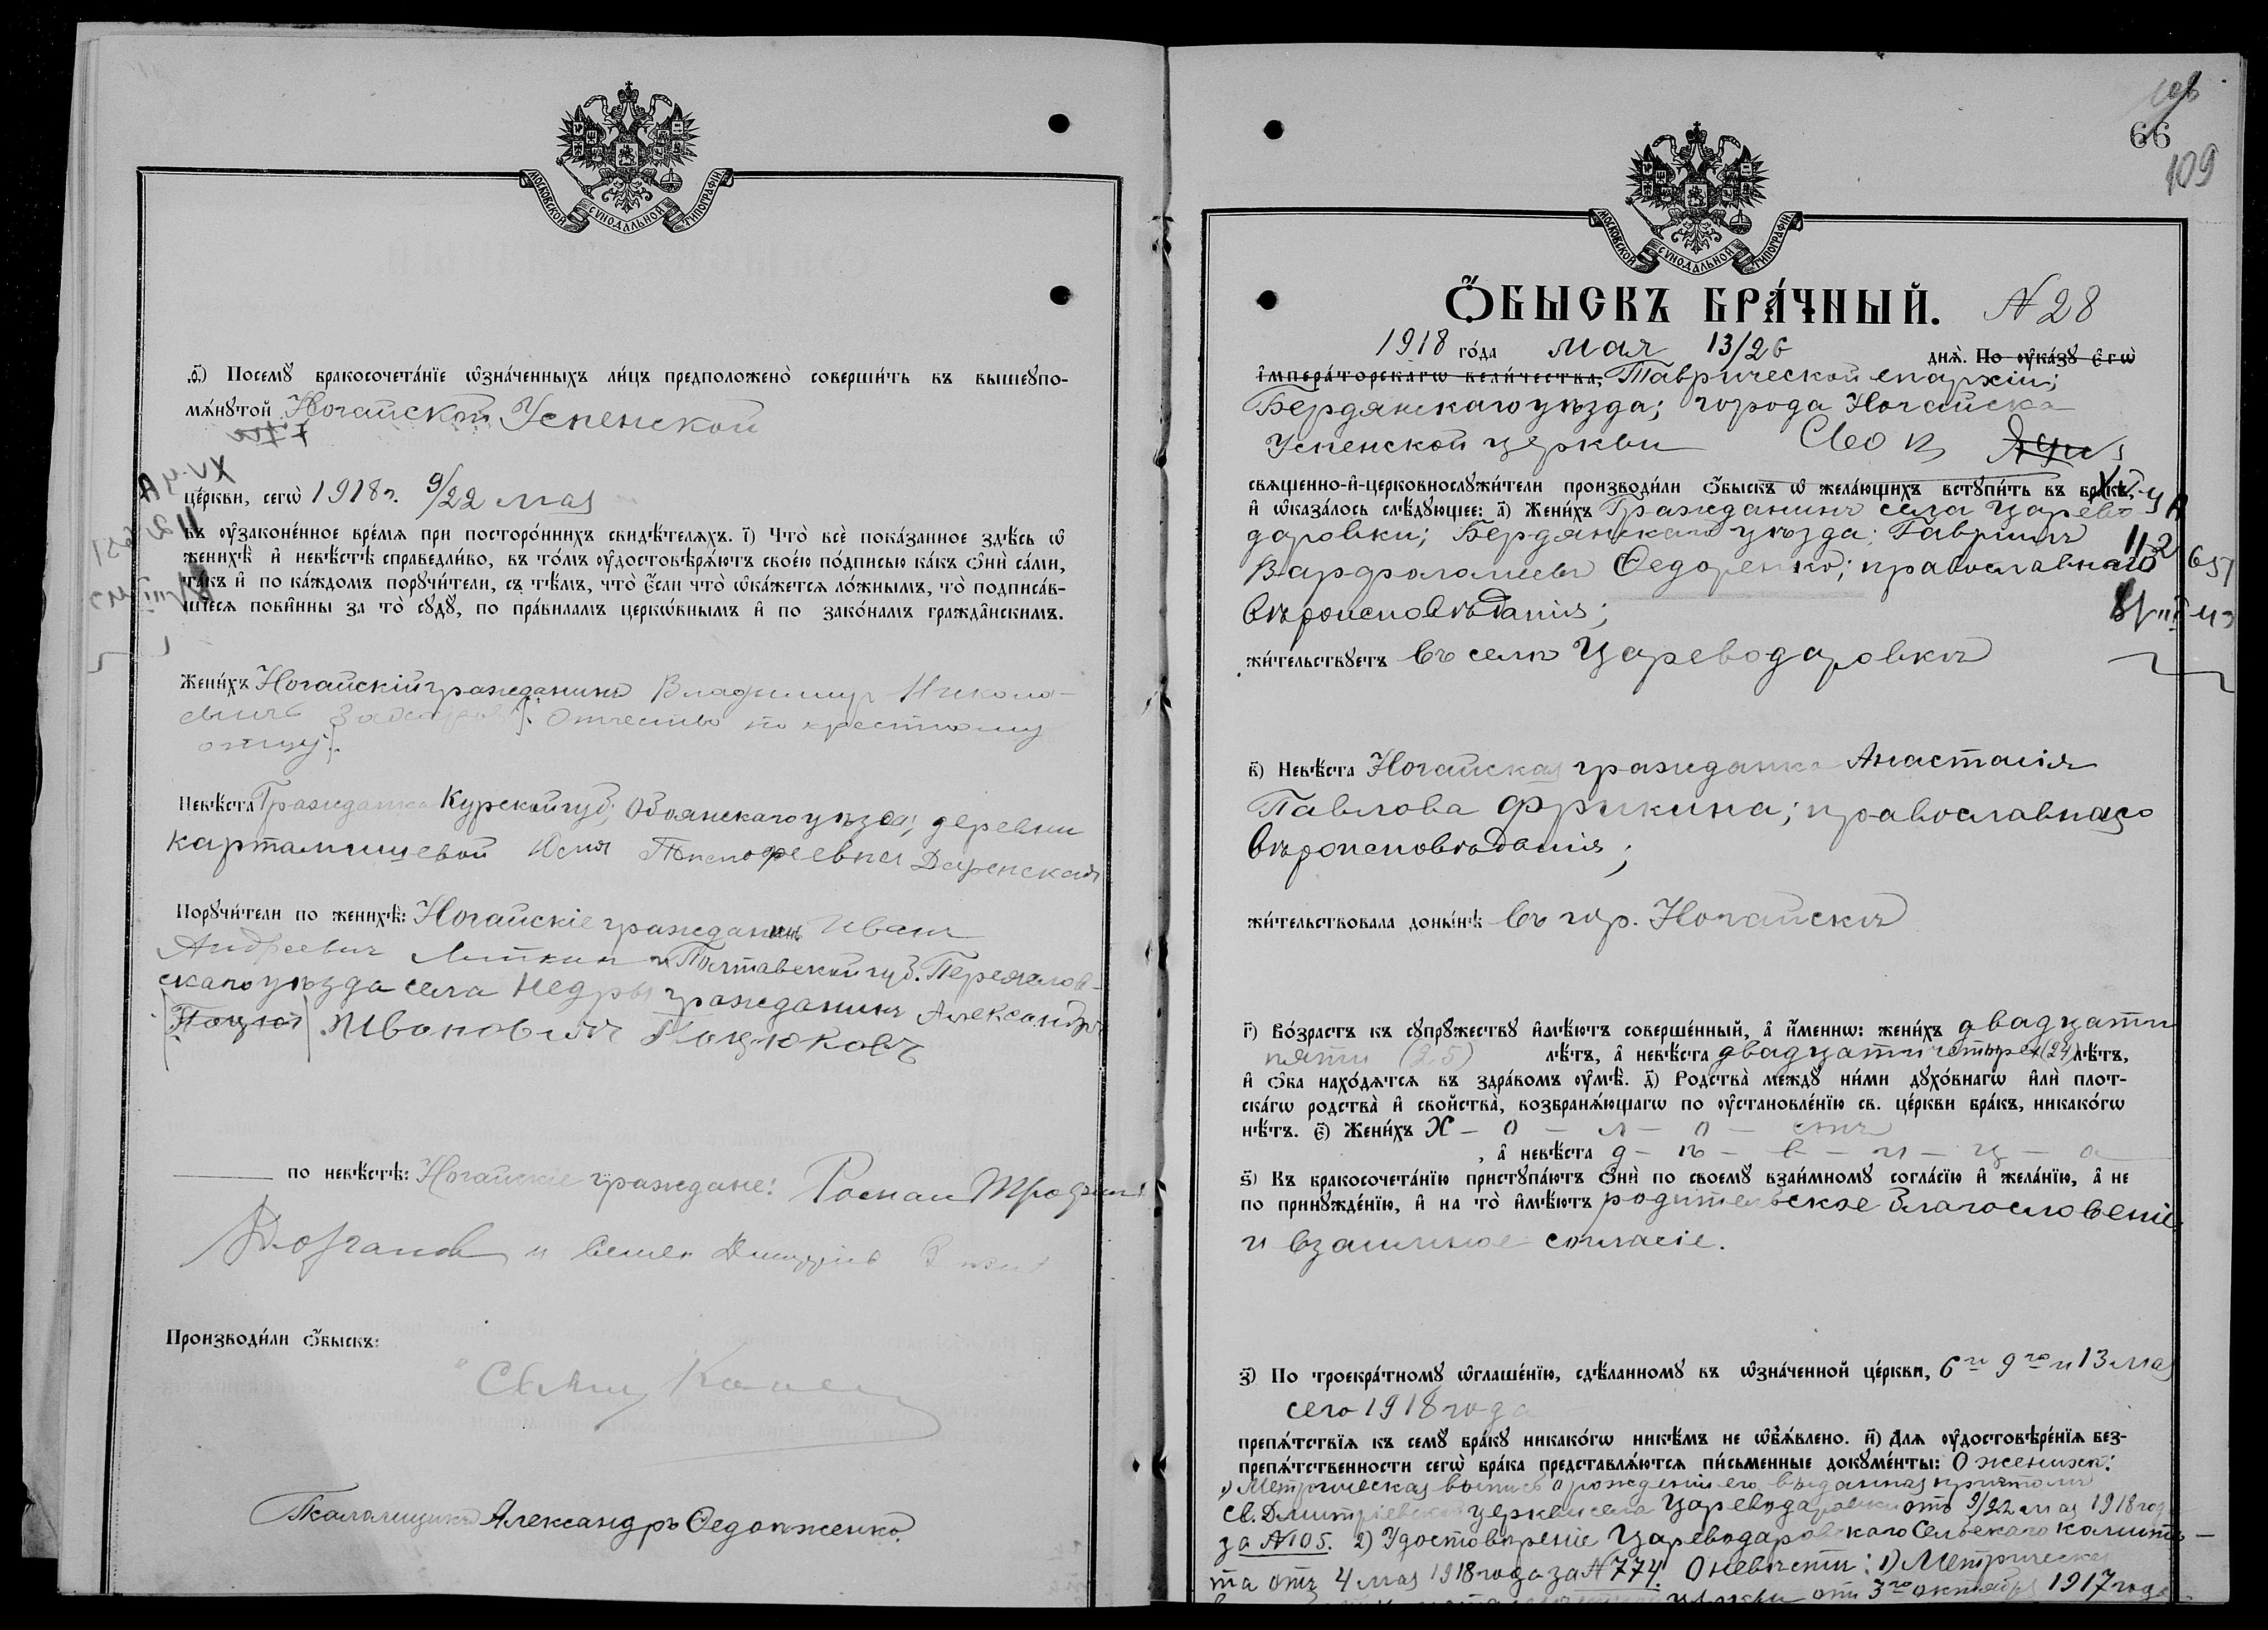 МОСКОВСКОЙ СѴНОДАЛЬНОЙ ТИПОГРАФІИ
ѳ҃) Посемꙋ̀ бракосочета́нїе ѡ҆зна́ченныхъ ли́цъ предположено̀ соверши́ть въ вышеупо-
мѧ́нꙋтой Ногайской Успенской
це́ркви, сегѡ̀ 1918 г. 9/22 мая
въ ᲂу҆зако́ненное вре́мѧ при посторо́ннихъ свидѣ́телѧхъ. і҃) Что̀ всѐ пока́занное здѣ́сь ѡ҆
женихѣ̀ и҆ невѣ́стѣ справедли́во, въ то́мъ ᲂу҆достовѣрѧ́ютъ свое́ю по́дписью ка́къ ѻ҆нѝ са́ми,
та́къ и҆ по ка́ждомъ порꙋчи́тели, съ тѣ́мъ, что̀ є҆́сли что̀ ѡ҆ка́жетсѧ ло́жнымъ, то̀ подписа́в-
шїесѧ пови́нны за то̀ сꙋдꙋ̀, по пра́виламъ церкѡ́внымъ и҆ по зако́намъ гражда́нскимъ.
Жени́хъ Ногайскій гражданинъ Владимир Николо-
евичъ Отчество по крестному
отцу
Невѣ́ста Гражданка Курской губ; Обоянскаго уѣзда; деревни
картамышевой
Порꙋчи́тели по женихѣ̀: Ногайскіе гражданинъ Иван
Андреевич и Полтавской губ. Переяслов-
скаго уѣзда села Недры гражданинъ Александръ
Поцюк Ивановичъ Поцюковъ
по невѣ́стѣ: Ногайскіе граждане: Роман
и Семен
Производи́ли ѻ҆́быскъ:
Свящ
Псаломщикъ Александръ Ѳедорженко.
66
109
МОСКОВСКОЙ СѴНОДАЛЬНОЙ ТИПОГРАФІИ
Ѻ҆́БЫСКЪ БРА́ЧНЫЙ. N 28
1918 го́да мая 13/26 днѧ̀. По ᲂу҆ка́зꙋ є҆гѡ̀
і҆мпера́торскагѡ вели́чества, Таврической епархіи;
Бердянскаго уѣзда; города Ногайска
Успенской церкви
свѧще́нно-и҆-церковнослꙋжи́тели производи́ли ѻ҆́быскъ ѡ҆ жела́ющихъ встꙋпи́ть въ бра́къ,
и҆ ѡ҆каза́лось слѣ́дꙋющее: а҃) Жени́хъ Гражданинъ села Царево-
даровки; Бердянскаго уѣзда; Гавріилъ
Варфоломіевъ Ѳедоренко; православнаго
вѣроисповѣданія;
112
651
жи́тельствꙋетъ въ селѣ Цареводаровкѣ
в҃) Невѣ́ста Ногайская гражданка Анастасія
Павлова Фрыкина; православнаго
вѣроисповѣданія;
жи́тельствовала доны́нѣ въ гор. Ногайскѣ
г҃) Во́зрастъ къ сꙋпрꙋ́жествꙋ и҆мѣ́ютъ соверше́нный, а҆ и҆́меннѡ: жени́хъ двадцати
пяти (25) лѣ́тъ, а҆ невѣ́ста двадцати четырех (24) лѣ́тъ,
и҆ ѻ҆́ба нахо́дѧтсѧ въ здра́вомъ ᲂу҆мѣ̀. д҃) Родства̀ междꙋ̀ ни́ми дꙋхо́внагѡ и҆лѝ плот-
ска́гѡ родства̀ и҆ сво́йства, возбранѧ́ющагѡ по ᲂу҆становле́нїю св. це́ркви бра́къ, никако́гѡ
нѣ́тъ. є҃) Жени́хъ Х – о – л – о – стъ
, а҆ невѣ́ста д – ѣ – в – и – ц – а
ѕ҃) Къ бракосочета́нїю пристꙋпа́ютъ ѻ҆нѝ по своемꙋ̀ взаи́мномꙋ согла́сїю и҆ жела́нїю, а҆ не
по принꙋжде́нїю, и҆ на то̀ и҆мѣ́ютъ родительское благословеніе
и взаимное согласіе.
з҃) По троекра́тномꙋ ѡ҆глаше́нїю, сдѣ́ланномꙋ въ ѡ҆зна́ченной це́ркви, 6го 9го и 13 мая
сего 1918 года
препѧ́тствїѧ къ семꙋ̀ бра́кꙋ никако́гѡ никѣ́мъ не ѡ҆б̾ѧ́влено. и҃) Длѧ ᲂу҆достовѣре́нїѧ без-
препѧ́тственности сегѡ̀ бра́ка представлѧ́ютсѧ пи́сьменные докꙋме́нты: О женихѣ:
1) Метрическая выпись о рожденіи его, выданная причтомъ
св. Димитріевской церкви села Цареводаровки отъ 9/22 мая 1918 года
за N 105. 2) Удостовѣреніе Цареводаровскаго Сельскаго комите-
та отъ 4 мая 1918 года за N 774. О невѣстѣ: 1) Метрическая
церкви отъ 3го октября 1917 года